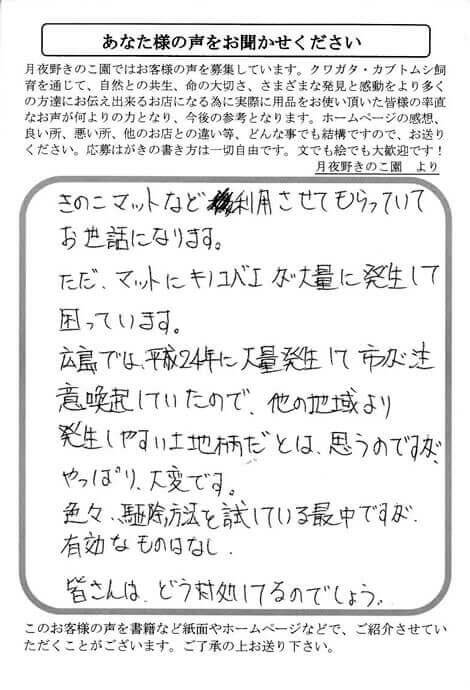 あなた様の声をお聞かせください
月夜野きのこ園ではお客様の声を募集しています。クワガタ・カブトムシ飼
育を通じて、自然との共生、命の大切さ、さまざまな発見と感動をより多く
の方達にお伝え出来るお店になる為に実際に用品をお使い頂いた皆様の率直
なお声が何よりの力となり、今後の参考となります。ホームページの感想、
良い所、悪い所、他のお店との違い等、どんな事でも結構ですので、お送り
ください。応募はがきの書き方は一切自由です。文でも絵でも大歓迎です！
月夜野きのこ園　より
きのこマットなど利用させてもらっていて
お世話になります。
ただ、マットにキノコバエが大量に発生して
困っています。
広島では、平成24年に大量発生して市が注
意喚起していたので、他の地域より
発生しやすい土地柄だとは、思うのですが、
やっぱり、大変です。
色々、駆除方法を試している最中ですが、
有効なものはなし.
皆さんは、どう対処してるのでしょう。
このお客様の声を書籍など紙面やホームページなどで、ご紹介させてい
ただくことがございます。ご了承の上お送り下さい。